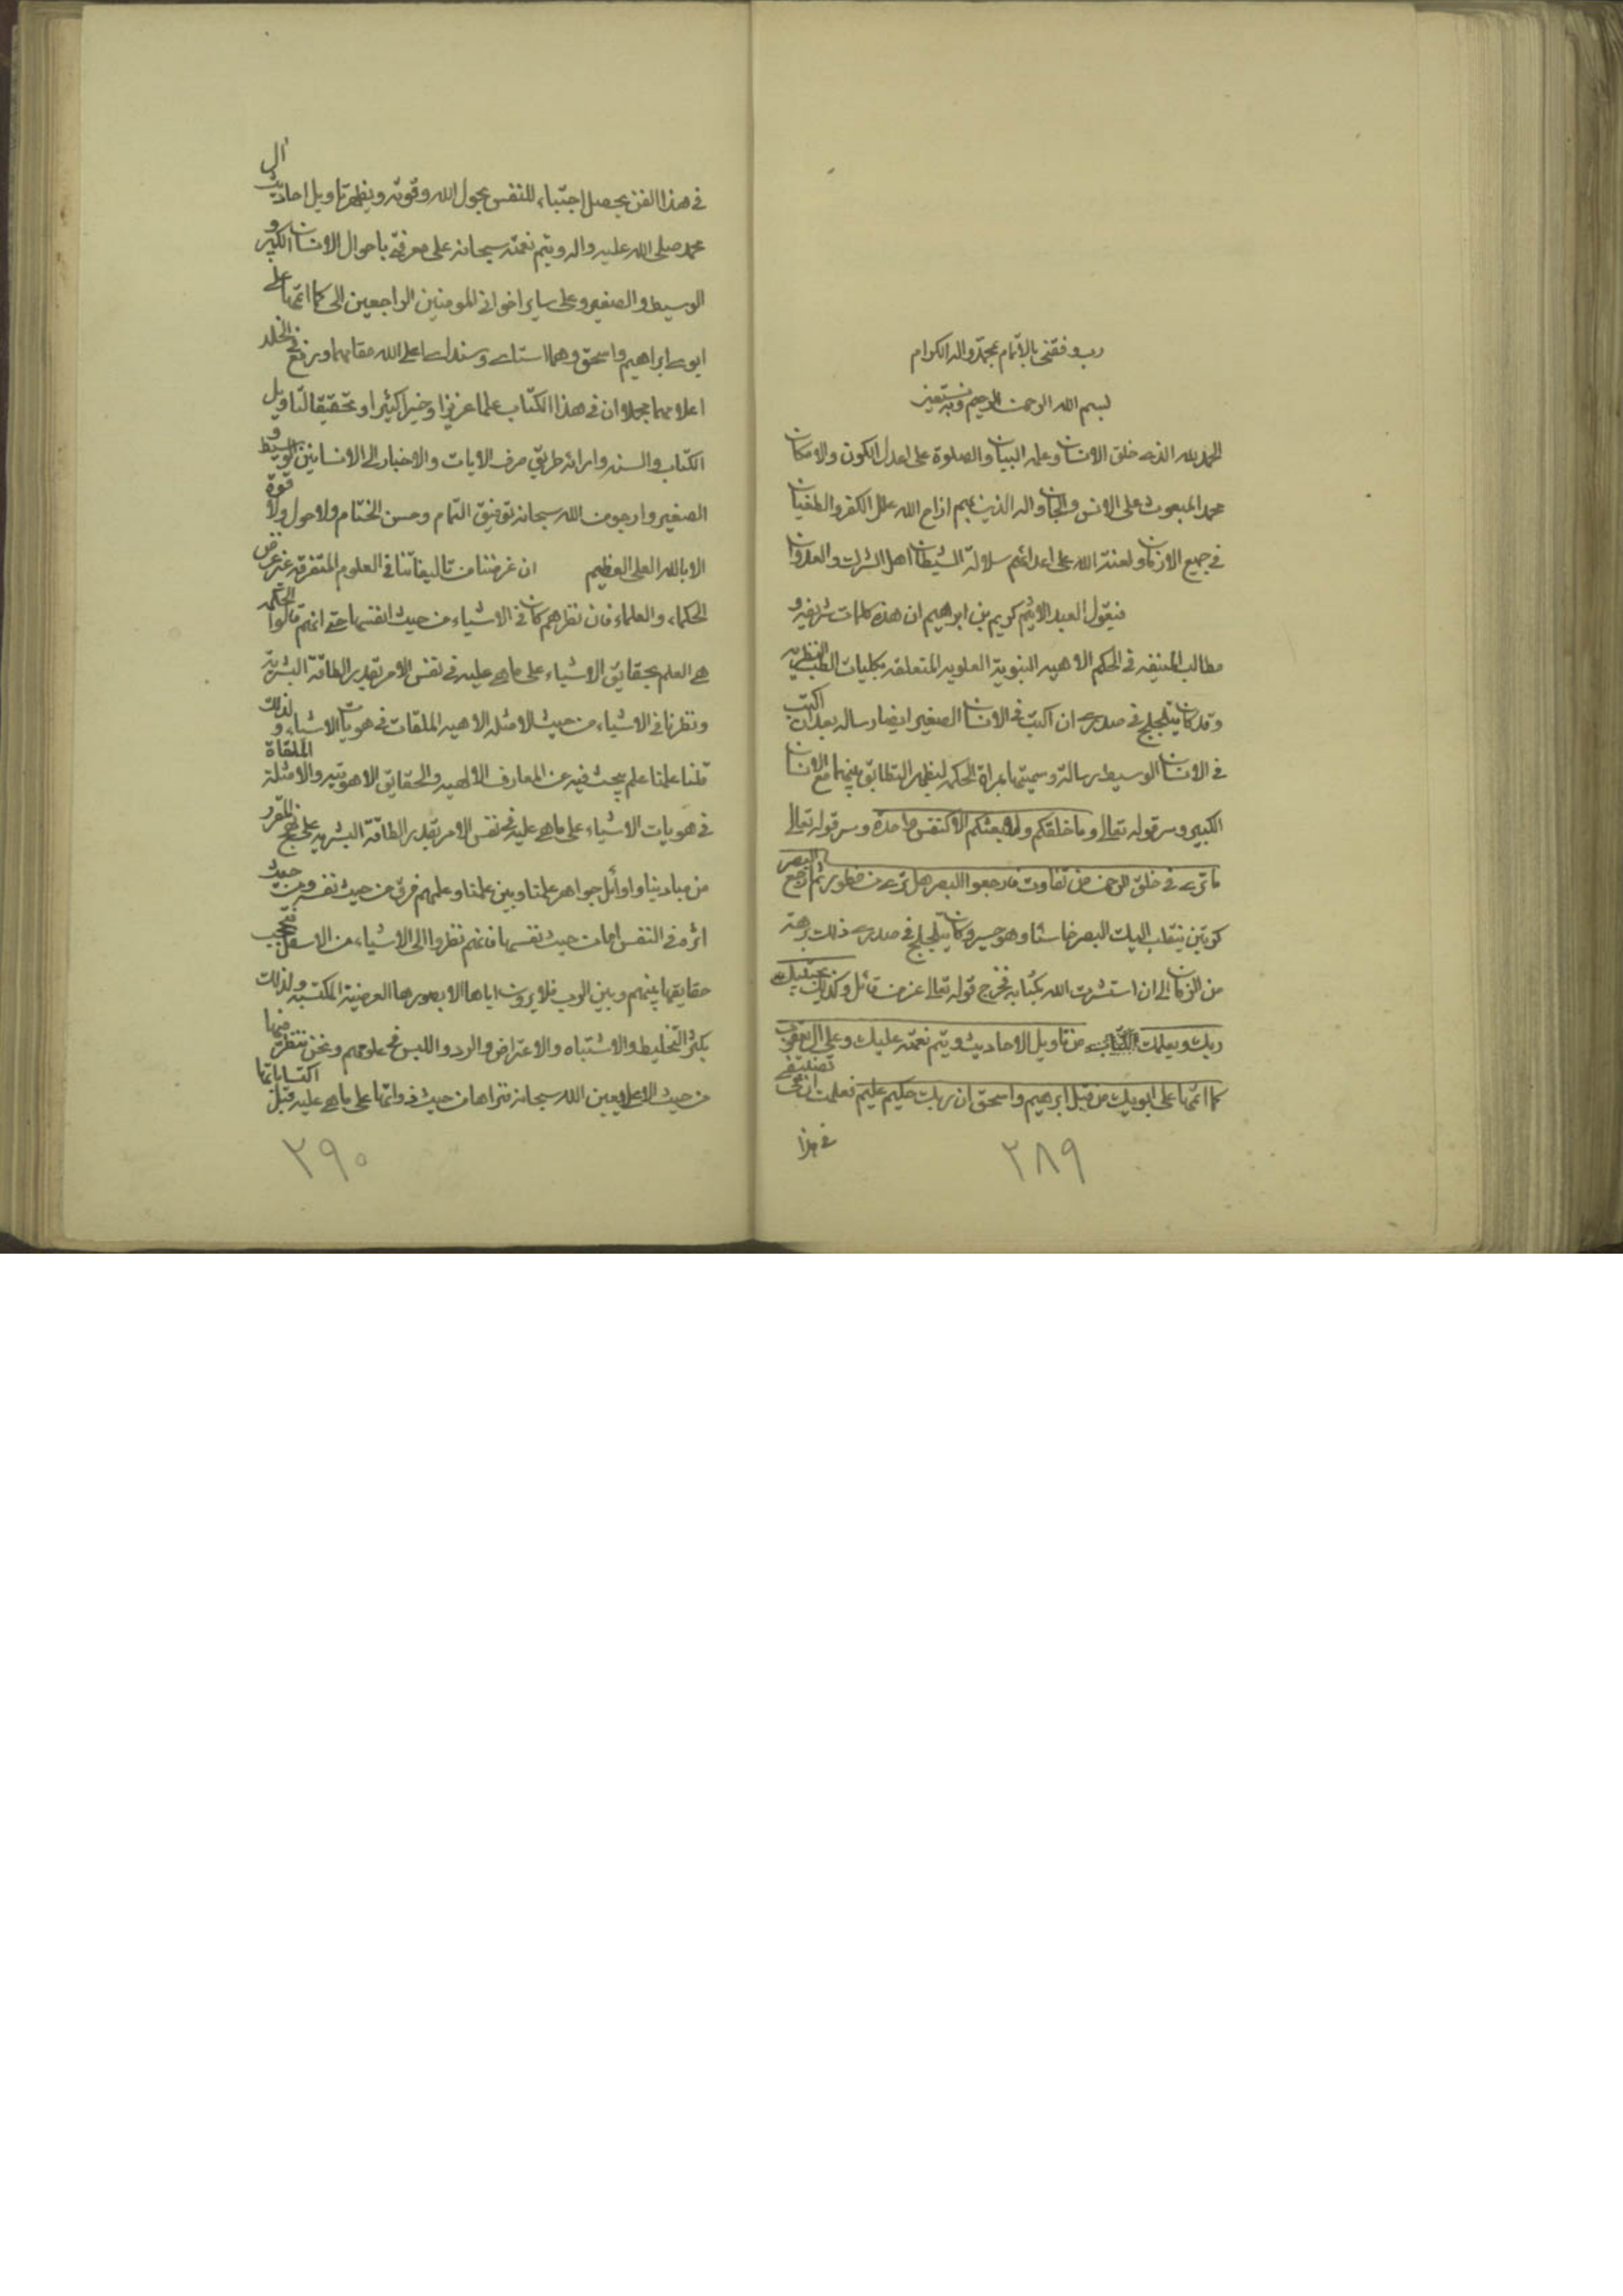 رب وفقني بالاتمام بمحمد واله الكرام
بسم الله الرحمن الرحيم وبه نستعين
الحمد لله الذي خلق الانسان وعلمه البيان والصلوة على اعدل الكون والامكان
محمد المبعوث على الانس والجان واله الذين بهم ازاح الله علل الكفر والطغيان
في جميع الازمان ولعنة الله على اعدائهم سلالة الشيطان اهل الشرك والعدوان
فيقول العبد الاثيم كريم بن ابرهيم ان هذه كلمات شريفه و
مطالب المنيفه في الحكم الالهيه النبوية العلويه المتعلقه بكليات الطب النظريه
وقد كان يتلجلج في صدري ان اكتب في الانسان الصغير ايضا رساله بعد ان اكتب
في الانسان الوسيط رسالة وسميتها بمراة الحكمه ليظهر التطابق بينهما مع الانسان
الكبير وسر قوله تعالى وما خلقكم ولا بعثكم الا كنفس واحدة وسر قوله تعالى
ما ترى في خلق الرحمن من تفاوت فارجعوا البصر هل ترى من فطور ثم ارجع البصر
كرتين ينقلب اليك البصر خاسئا وهو حسير وكان يتلجلج في صدري ذلك برهة
من الزمان الى ان استشرت الله بكتابه فخرج قوله تعالى عز من قائل وكذلك يجتبيك
ربك ويعلمك من تاويل الاحاديث ويتم نعمته عليك وعلى ال يعقوب
كما اتمها على ابويك من قبل ابرهيم واسحق ان ربك حكيم عليم فعلمت ان في تصنيفي
في هذا
٢٨٩
في هذا الفن يحصل اجتباء للنفس بحول الله وقوته ويظهر تاويل احاديث ال
محمد صلى الله عليه واله ويتم نعمته سبحانه على معرفة باحوال الانسان الكبير و
الوسيط والصغير وعلى ساير اخواني المومنين الراجعين الى كما اتمها على
ابوي ابراهيم واسحق وهما استادي وسنداي اعلى الله مقامهما ورفع في الخلد
اعلامهما مجملا ان في هذا الكتاب علما عزيزا وخيرا كثيرا وتحقيقا لتاويل
الكتاب والسنه واراءة طريق صرف الايات والاخبار الى الانسانين الوسيط و
الصغير وارجو من الله سبحانه توفيق التمام وحسن الختام ولا حول ولا قوة
الا بالله العلي العظيم ان غرضنا من تاليفاتنا في العلوم المتفرقه غير غرض
الحكماء والعلماء فان نظرهم كان في الاشياء من حيث انفسها حتى انهم قالوا الحكمه
هي العلم بحقايق الاشياء على ما هي عليه في نفس الامر بقدر الطاقة البشرية
ونظرنا في الاشياء من حيث الامثله الالهيه الملقات في هويات الاشياء و لذلك
قلنا علمنا علم يبحث فيه عن المعارف الالهيه والحقايق اللاهوتيه والامثلة الملقاة
في هويات الاشياء على ما هي عليه في نفس الامر بقدر الطاقة البشريه على نهج المقرر
من مبادينا واوائل جواهر علمنا وبين علمنا وعلمهم فرق من حيث نفسه ومن حيث
اثره في النفس اما من حيث نفسها فانهم نظروا الى الاشياء من الاسفل فتحجب
حقايقها بينهم وبين الرب فلا يرون اياها الا بصورها العرضية المكتسبه ولذلك
يكثر التخليط والاشتباه والاعتراض والرد واللبس في علومهم ونحن ننظر منها
من حيث الاعلى وبعين الله سبحانه فنراها من حيث ذواتها على ما هي عليه قبل اكتساباتها
٢٩٠